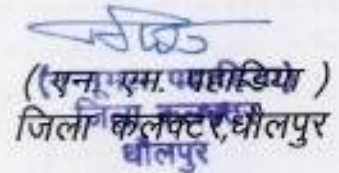 (एन. एम. पहाडिया )
जिला कलक्टर,धौलपुर
धौलपुर